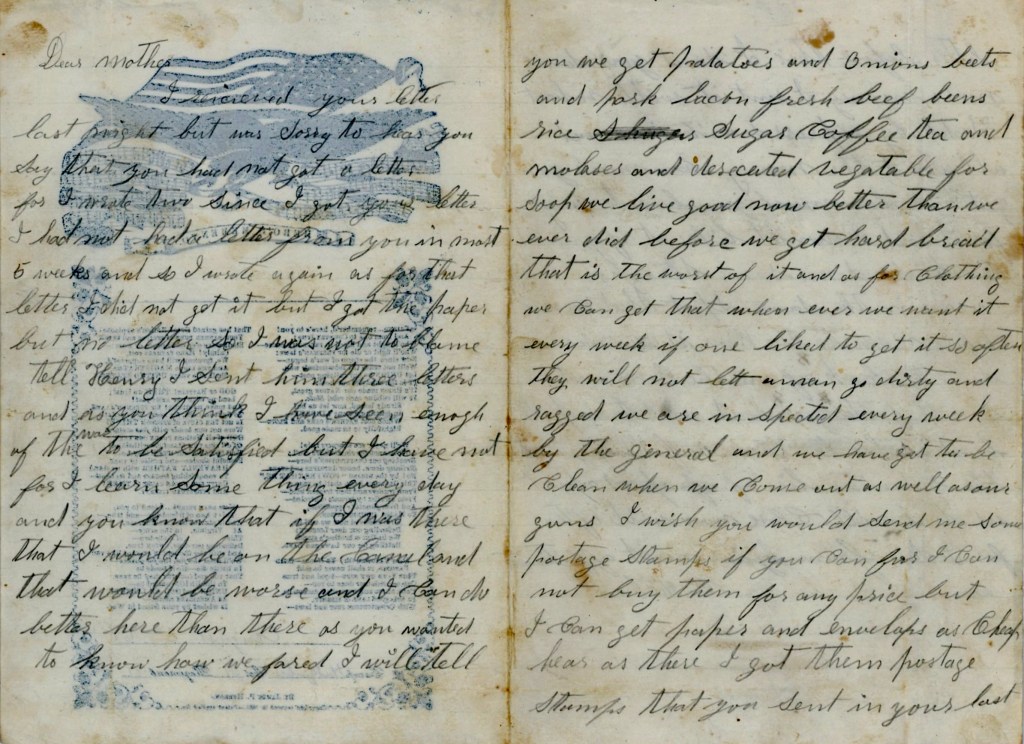 Dear mother
I recieved your letter
last night but was sorry to hear you
say that you had not got a letter
for I wrote two since I got your letter
I had not had a letter from you in most
5 weeks and so I wrote again as for that
letter I did not get it but I got the paper
but no letter so I was not to blame
tell Henry I sent him three letters
and as you think I have seen enogh
of the war to be satisfied but I have not
for I learn some thing every day
and you know that if I was there
that I would be on the Canel and
that would be worse and I Can do
better here than there as you wanted
to know how we fared I will tell
you we get potatoes and Onions beets
and pork bacon fresh beef beens
rice Sugar Coffee tea and
molases and desecated vegatable for
soop we live good now better than we
ever did before we get hard bread
that is the worst of it and as for Clothing
we Can get that when ever we want it
every week if one liked to get it so often
they will not lett a man go dirty and
ragged we are in spected every week
by the general and we have got to be
Clean when we Come out as well as our
guns I wish you would send me some
postage stamps if you Can for I Can
not buy them for any price but
I Can get paper and envelops as Cheap
hear as there I got them postage
stamps that you sent in your last